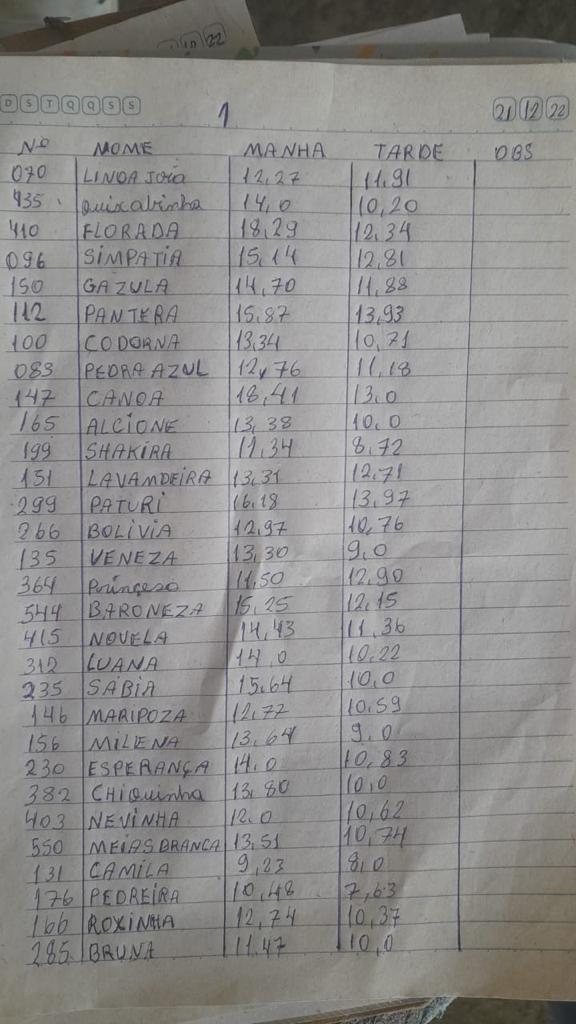 D S T Q Q S S
1
21 12 22
Nº NOME MANHA TARDE OBS
070 LINDA JOIA 12,27 11,91
435 quixabinha 14,0 10,20
410 FLORADA 18,29 12,34
096 SIMPATIA 15,14 12,81
150 GAZULA 14,70 11,88
112 PANTERA 15,87 13,93
100 CODORNA 13,34 10,71
083 PEDRA AZUL 12,76 11,18
147 CANOA 18,41 13,0
165 ALCIONE 13,38 10,0
199 SHAKIRA 11,34 8,72
151 LAVAMDEIRA 13,31 12,71
299 PATURI 16,18 13,97
266 BOLIVIA 12,97 10,76
135 VENEZA 13,30 9,0
364 11,50 12,90
544 BARONEZA 15,25 12,15
415 NOVELA 14,43 11,36
312 LUANA 14,0 10,22
235 SABIA 15,64 10,0
146 MARIPOZA 12,72 10,59
156 MILENA 13,64 9,0
230 ESPERANÇA 14,0 10,83
382 CHiquinha 13,80 10,0
403 NEVINHA 12,0 10,62
550 MEIAS BRANCA 13,51 10,74
131 CAMILA 9,23 8,0
176 PEDREIRA 10,48 7,63
166 ROXINHA 12,74 10,37
285 BRUNA 11,47 10,0